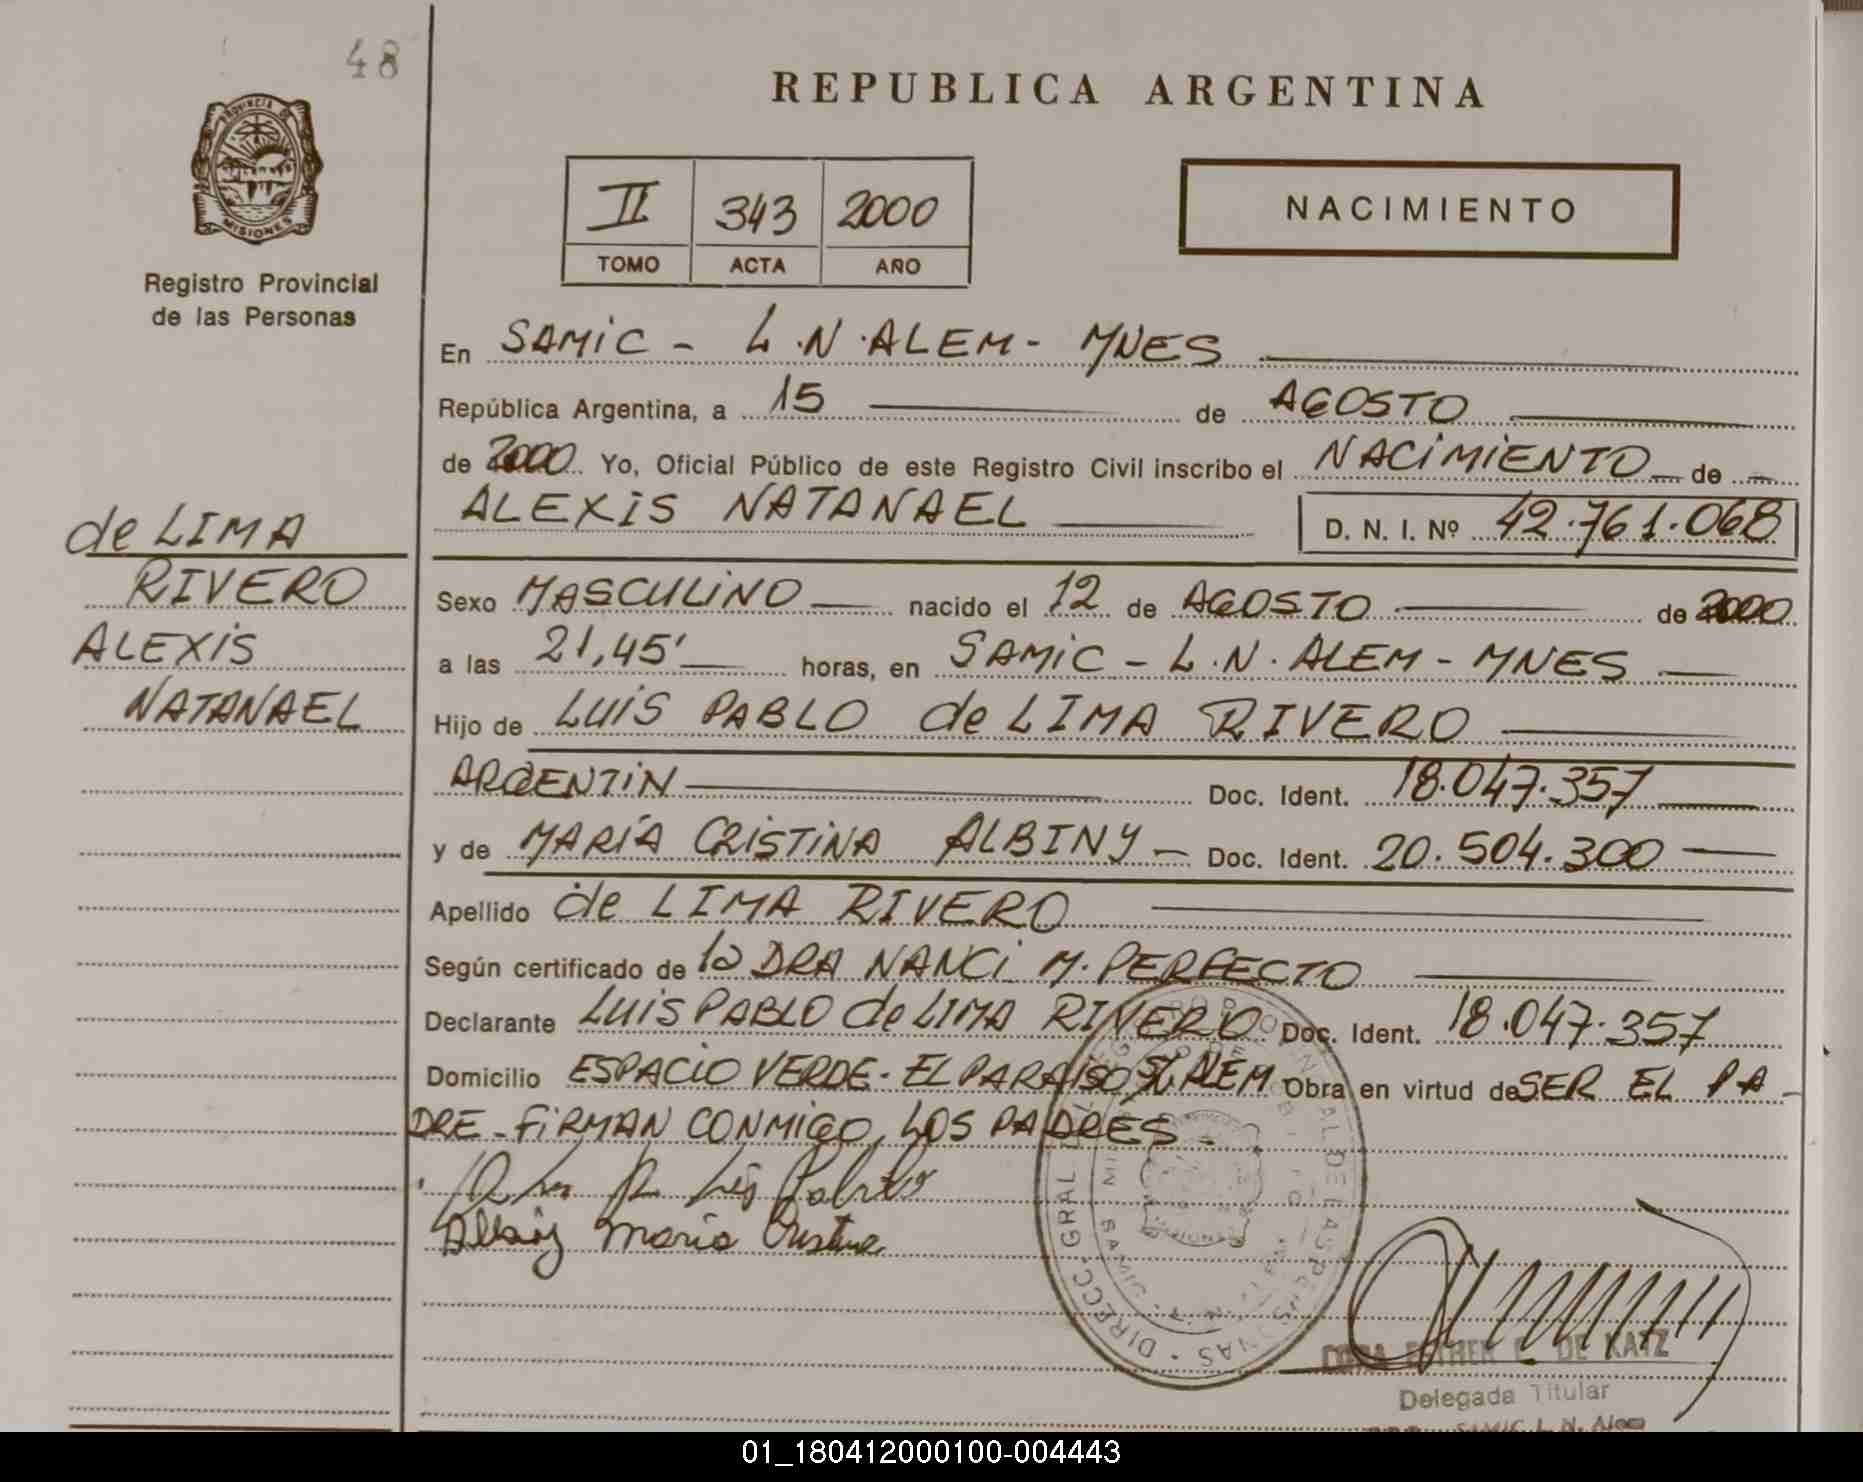 48
REPUBLICA ARGENTINA
PROVINCIA DE
MISIONES
Registro Provincial
de las Personas
II 343 2000
TOMO ACTA AÑO
NACIMIENTO
En SAMIC - L.N.ALEM- MNES
República Argentina, a 15 de AGOSTO
de 2000 Yo, Oficial Público de este Registro Civil inscribo el NACIMIENTO de
ALEXIS NATANAEL D. N. I. Nº 42.761.068
de LIMA
RIVERO
ALEXIS
NATANAEL
Sexo MASCULINO nacido el 12 de AGOSTO de 2000
a las 21,45' horas, en SAMIC - L.N. ALEM - MNES
Hijo de LUIS PABLO de LIMA RIVERO
ARGENTIN Doc. Ident. 18.047.357
y de MARÍA CRISTINA ALBINY - Doc. Ident. 20.504.300
Apellido de LIMA RIVERO
Según certificado de la DRA NANCI M. PERFECTO
Declarante LUIS PABLO de LIMA RIVERO Doc. Ident. 18.047.357
Domicilio ESPACIO VERDE - EL PARAISO ALEM Obra en virtud de SER EL PA-
DRE - FIRMAN CONMIGO, LOS PADRES -
Albiny María Cristina
DIRECC. GRAL DE LAS PERSONAS
DE KATZ
Delegada Titular
SAMIC L. N. Alem
01_180412000100-004443